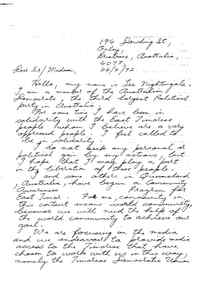 194 Harding St,
Brisbane, Australia,
4077.
26/6/92
Dear Sir/Madam,
Hello, my name is Lee Nightingale.
I am a member of the Australian
Democrats the third largest Political
party in Australia.
For some time I have been in
solidarity with the East Timorese
people whom I believe are a very
oppressed people. I feel called to
be in solidarity.
I do not seek any personal or
political gain by my actions, but
I hope that I could play a part
in the liberation of these people.
I and some others in Queensland,
Australia, have begun a Community
Awareness Program for
East Timor. For me, community in
this context means world community
because we will need the help of
the world community to achieve our
goal.
We are focusing on the media
and we endeavour to provide media
access to the Timorese that have
chosen to work with us in this way,
namely the Timorese Democratic Union